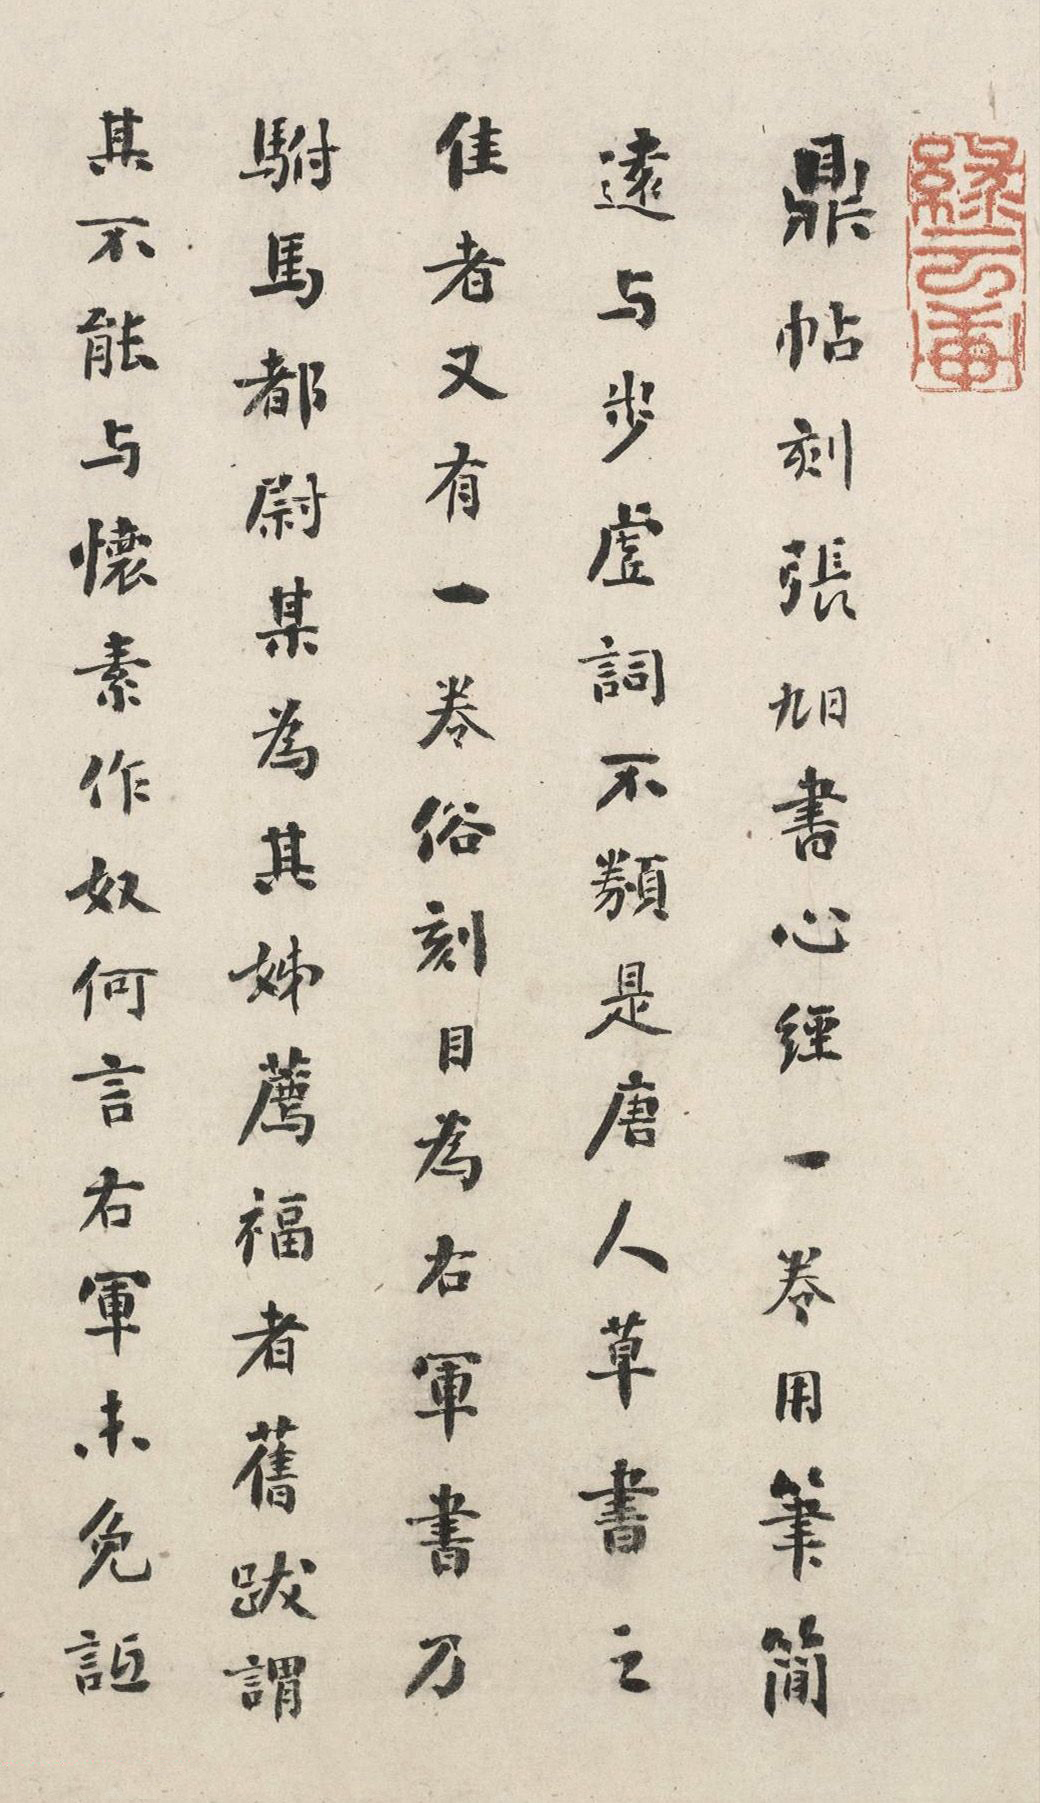 鼎帖刻張旭書心經一卷用筆簡
遠与步虛詞不類是唐人草書之
佳者又有一卷俗刻目為右軍書乃
駙馬都尉某為其姊薦福者舊跋謂
其不能与懷素作奴何言右軍未免詆